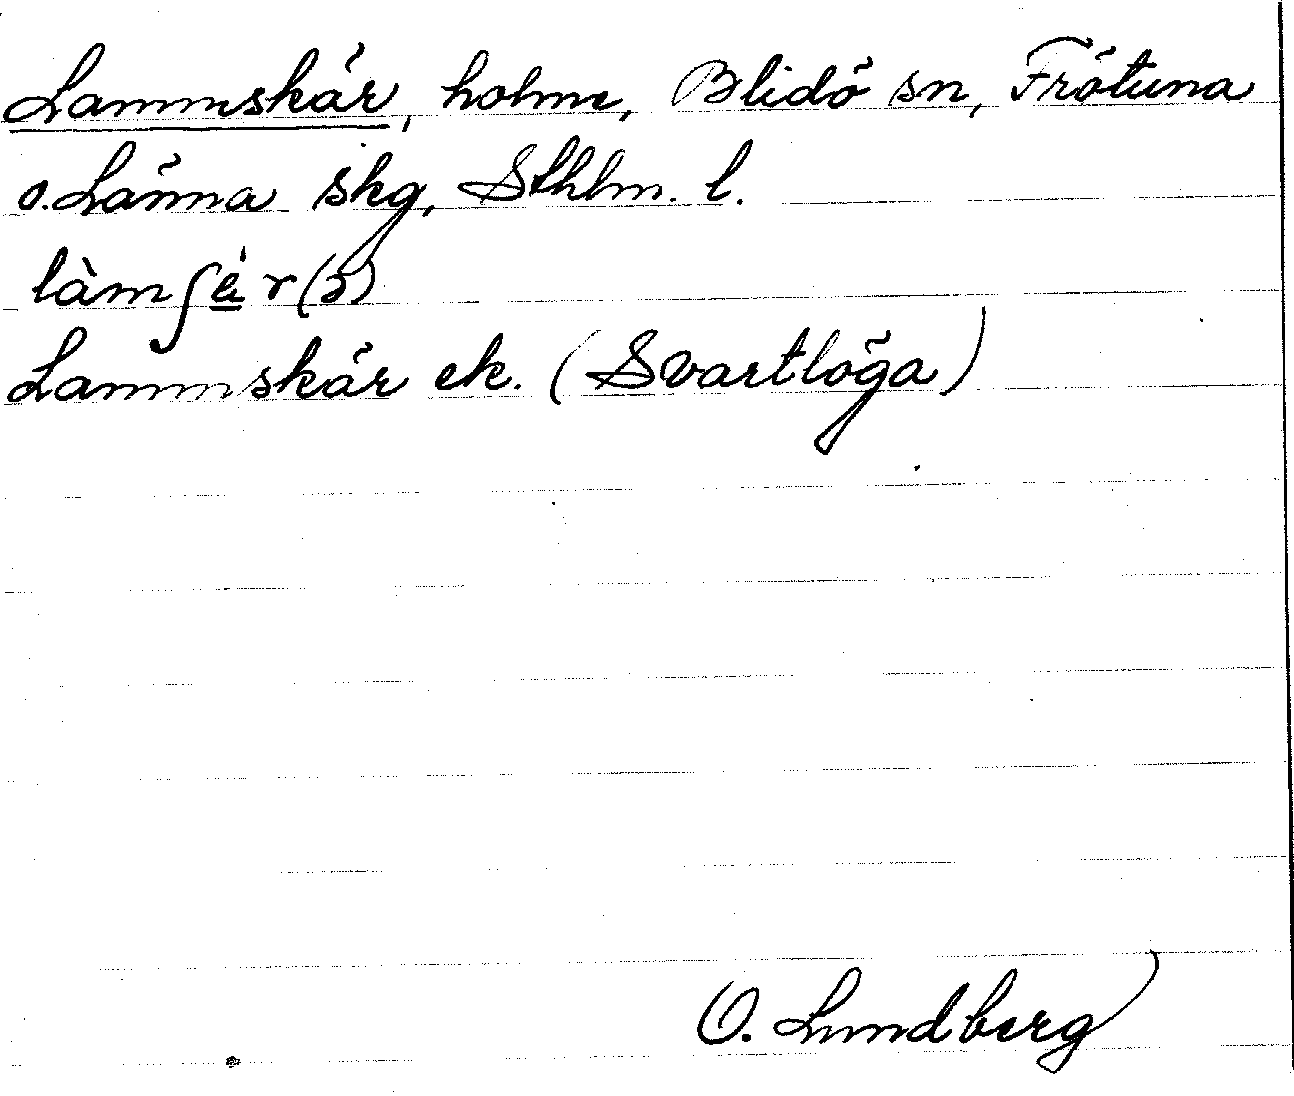 Lammskär, holme, Blidö sn, Frötuna
o. Länna skg, Sthlm. l.
làmʃæ̀r(ə)
Lammskär ek. (Svartlöga)
O. Lundberg